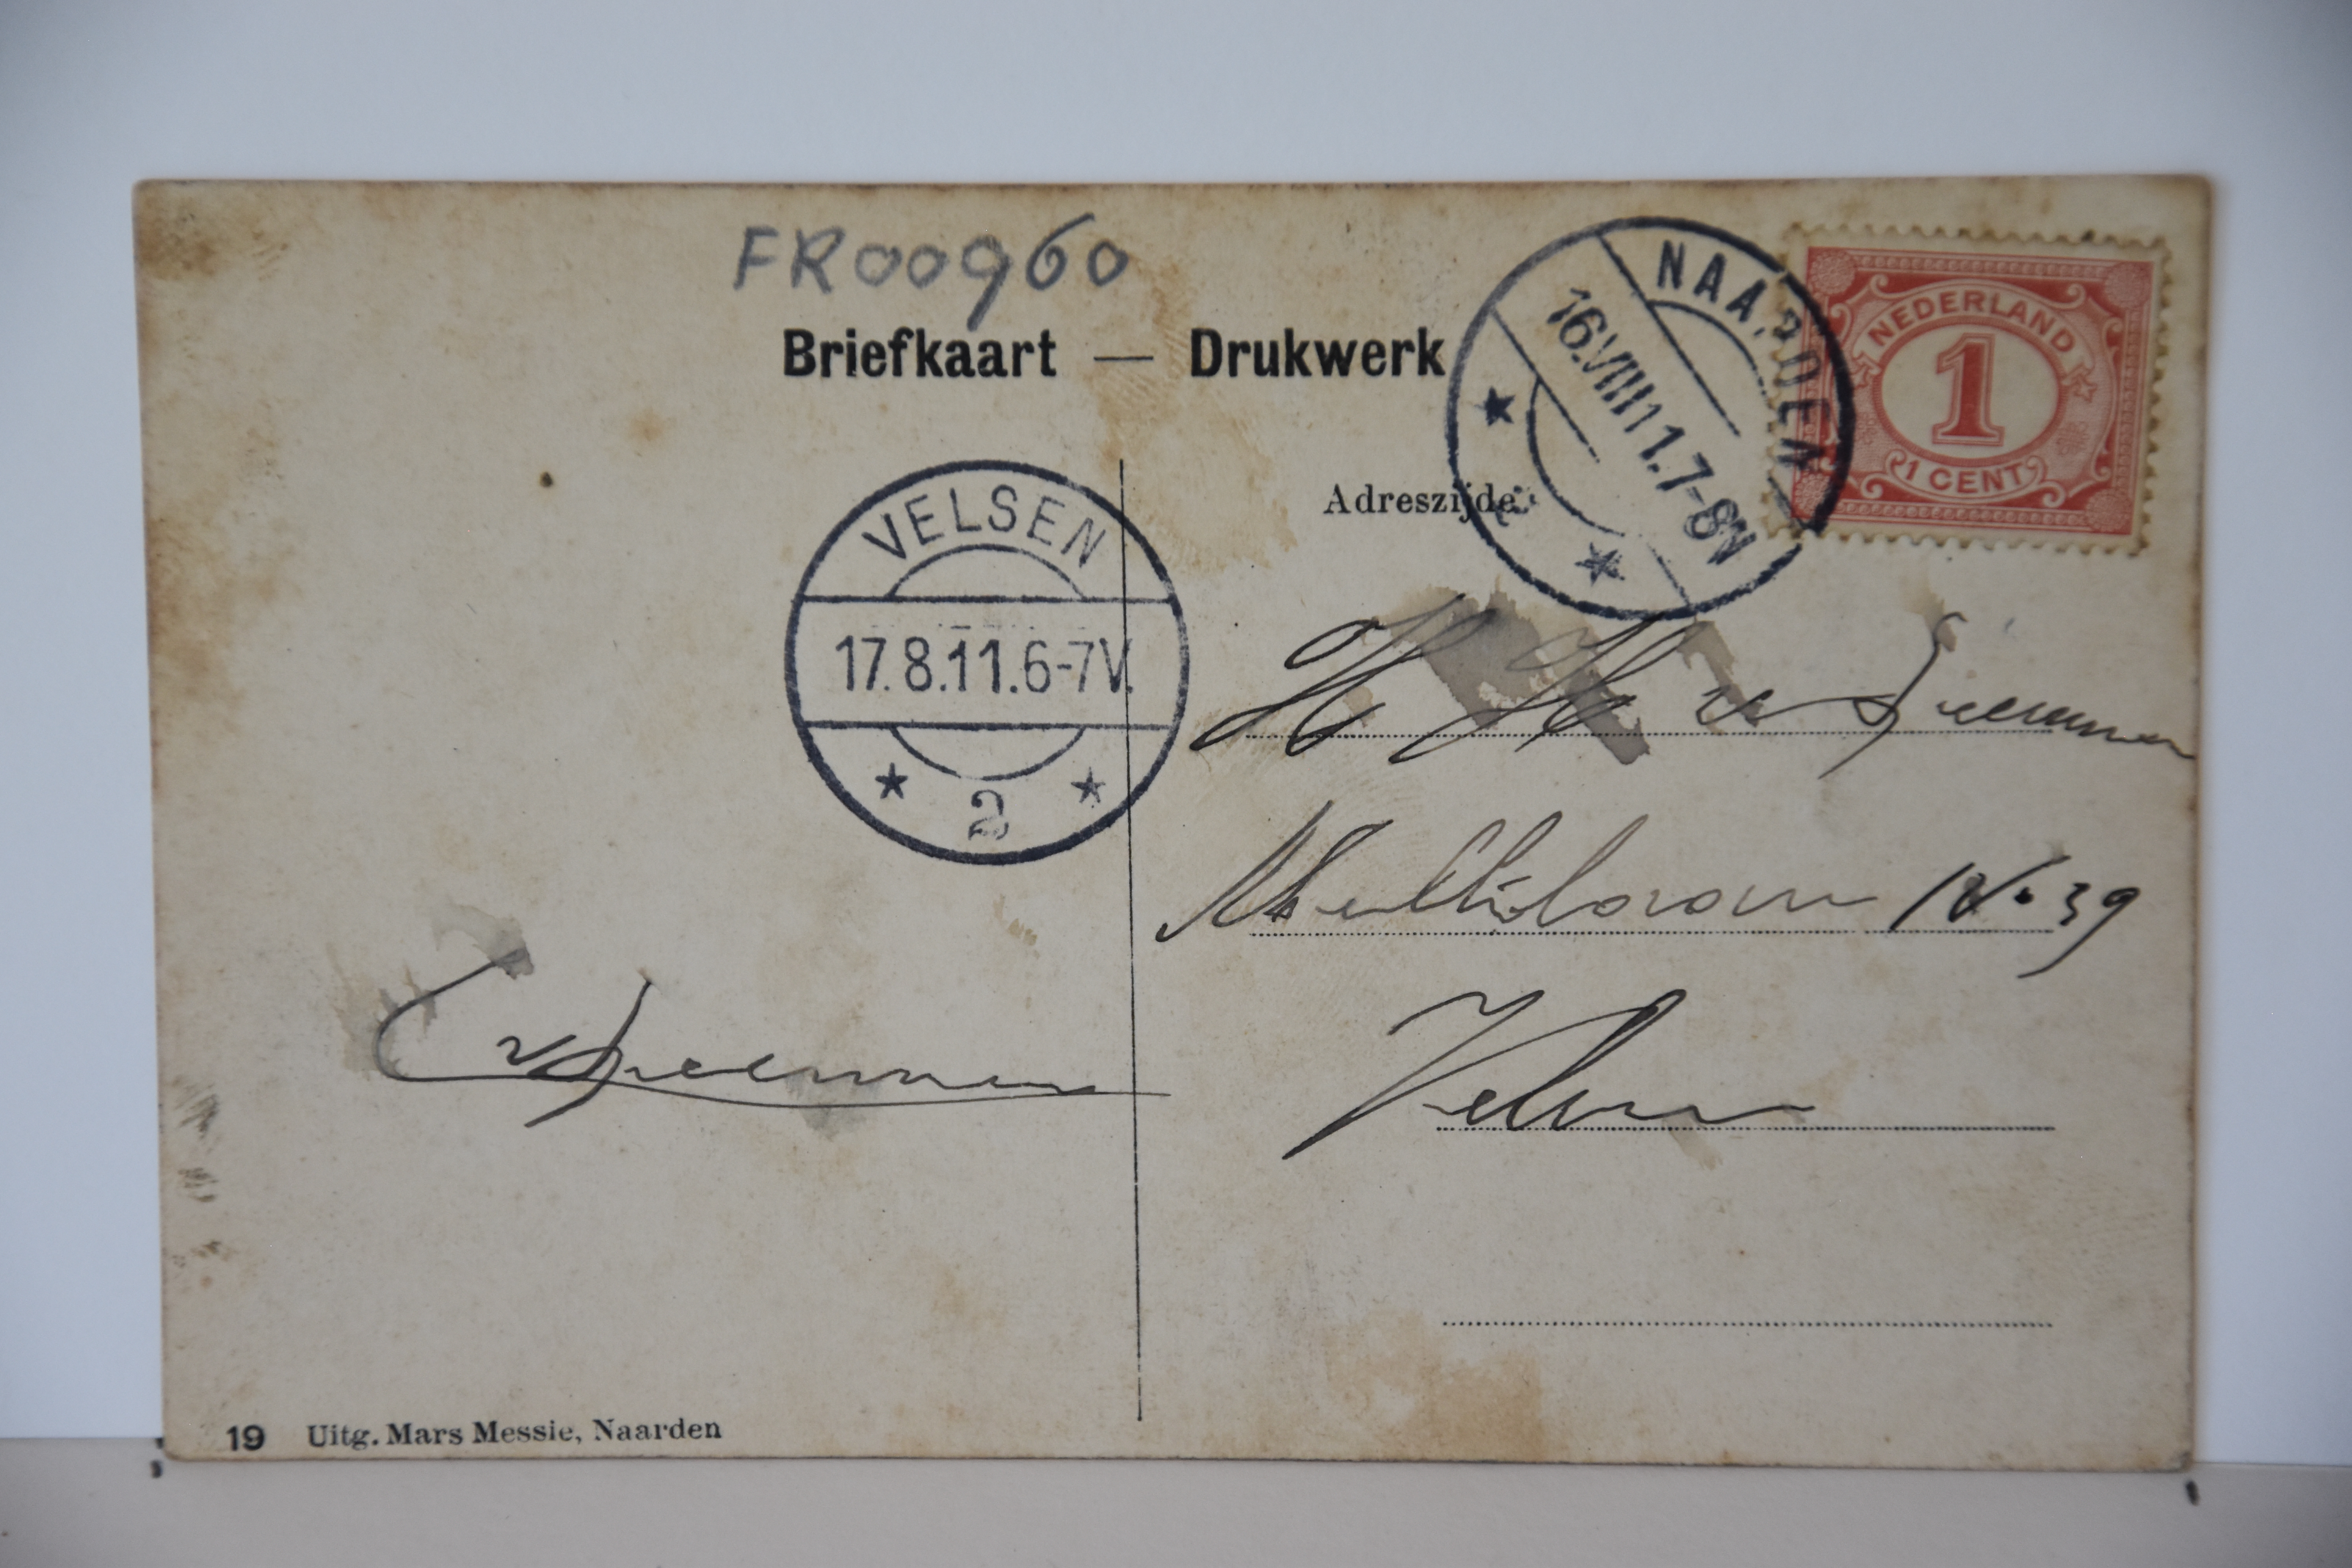 FR00960
Briefkaart — Drukwerk
NAARDEN
16.VIII11.7-8N
NEDERLAND
1
1 CENT
Adreszijde
VELSEN
17.8.11.6-7V.
2
H H v
No 39
Velsen
C v
19 Uitg. Mars Messie, Naarden